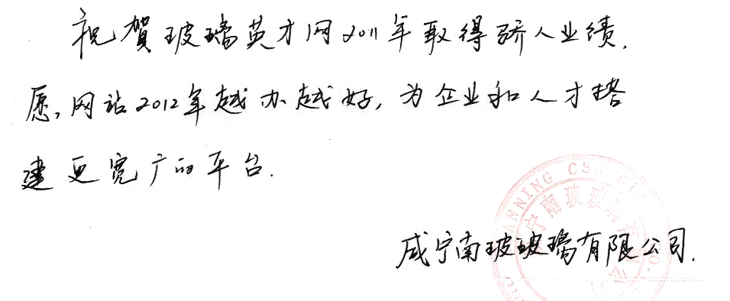 祝贺玻璃英才网2011年取得骄人业绩.
愿,网站2012年越办越好,为企业和人才搭
建更宽广的平台.
咸宁南玻玻璃有限公司.